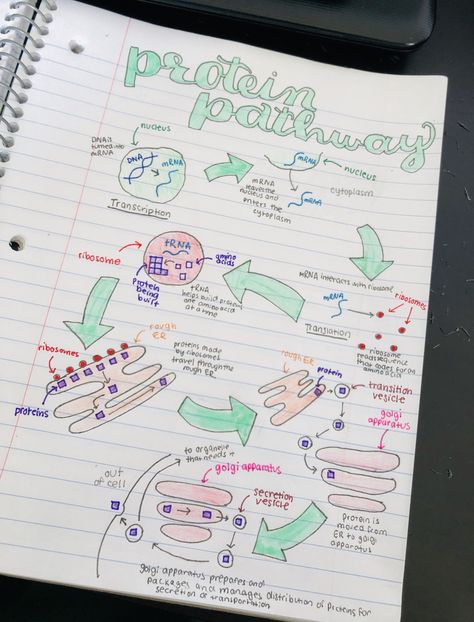 protein
pathway
nucleus
DNA is
turned into
mRNA
DNA
mRNA
Transcription
mRNA
nucleus
mRNA
leaves the
nucleus and
enters the
cytoplasm
mRNA
cytoplasm
mRNA interacts with ribosome
mRNA
ribosomes
Translation
ribosome
reads sequence
that codes for an
amino acid
ribosome
tRNA
amino
acids
protein
being
built
tRNA
helps build protein
one amino acid
at a time
ribosomes
rough
ER
proteins made
by ribosomes
travel through the
rough ER
proteins
rough ER
protein
transition
vesicle
golgi
apparatus
protein is
moved from
ER to golgi
apparatus
to organelle
that needs it
out
of cell
golgi apparatus
secretion
vesicle
golgi apparatus prepares and
packages and manages distribution of proteins for
secretion or transportation